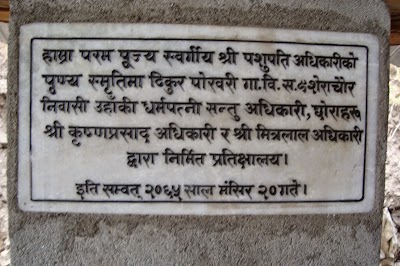 हाम्रा परम पूज्य स्वर्गीय श्री पशुपति अधिकारीको
पुण्य स्मृतिमा ढिकुर पोखरी गा.वि.स.८ शेराचौर
निवासी उहाँकी धर्मपत्नी सन्तु अधिकारी, छोराहरू
श्री कृष्णप्रसाद अधिकारी र श्री मित्रलाल अधिकारी
द्वारा निर्मित प्रतिक्षालय।
इति सम्वत् २०६५ साल मंसिर २० गते।